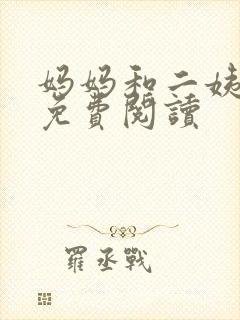 妈妈和二姨
免費閱讀
羅丞戰